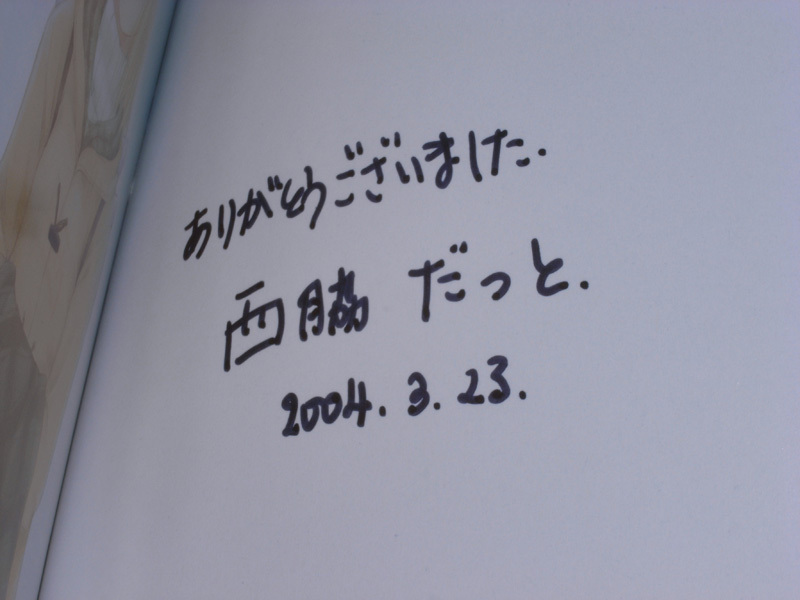 ありがとうございました.
西脇 だっと.
2004.3.23.